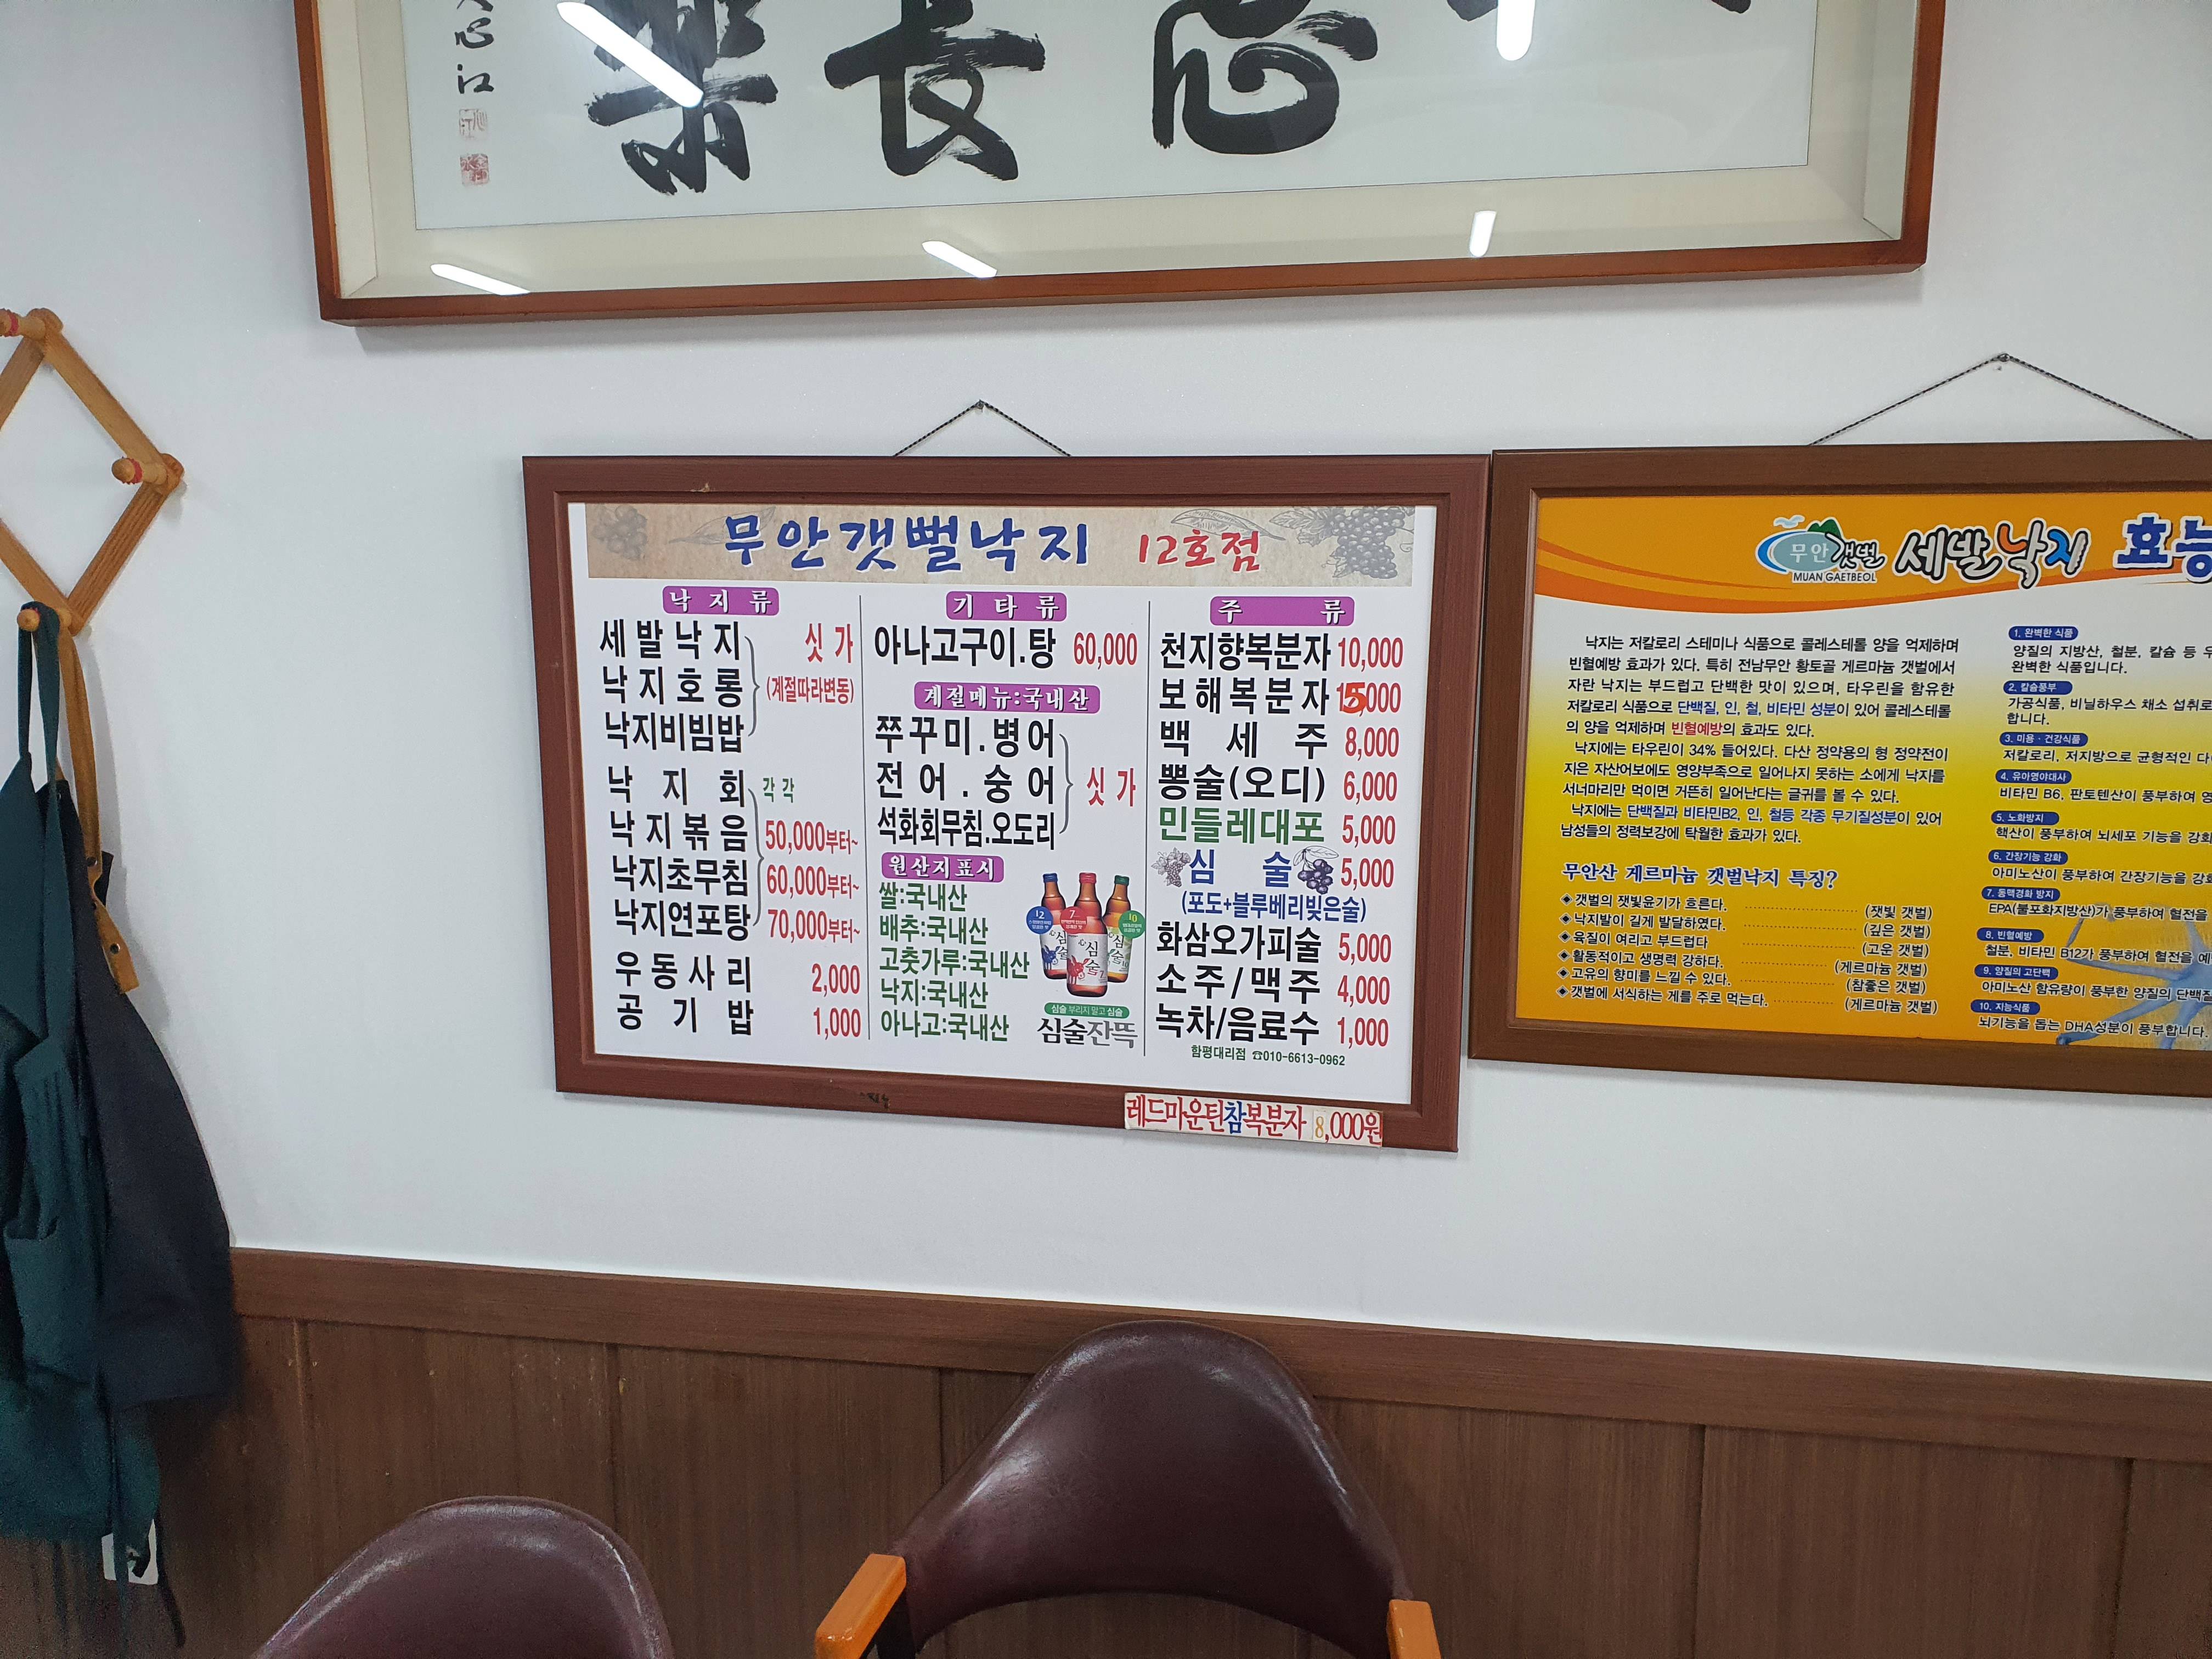 心江
樂長
무안갯뻘낙지 12호점
낙지류
세발낙지 싯가
낙지호롱 (계절따라변동)
낙지비빔밥
낙지회 각각
낙지볶음 50,000부터~
낙지초무침 60,000부터~
낙지연포탕 70,000부터~
우동사리 2,000
공기밥 1,000
기타류
아나고구이.탕 60,000
계절메뉴:국내산
쭈꾸미.병어
전어.숭어 싯가
석화회무침.오도리
원산지표시
쌀:국내산
배추:국내산
고춧가루:국내산
낙지:국내산
아나고:국내산
12
7
10
심술
심술 부리지 말고 심술
심술잔뜩
주류
천지향복분자 10,000
보해복분자 15,000
백세주 8,000
뽕술(오디) 6,000
민들레대포 5,000
심술 5,000
(포도+블루베리빚은술)
화삼오가피술 5,000
소주/맥주 4,000
녹차/음료수 1,000
함평대리점 ☎010-6613-0962
레드마운틴참복분자 8,000원
무안갯벌 세발낙지 효능
MUAN GAETBEOL
낙지는 저칼로리 스테미나 식품으로 콜레스테롤 양을 억제하며
빈혈예방 효과가 있다. 특히 전남무안 황토골 게르마늄 갯벌에서
자란 낙지는 부드럽고 단백한 맛이 있으며, 타우린을 함유한
저칼로리 식품으로 단백질, 인, 철, 비타민 성분이 있어 콜레스테롤
의 양을 억제하며 빈혈예방의 효과도 있다.
낙지에는 타우린이 34% 들어있다. 다산 정약용의 형 정약전이
지은 자산어보에도 영양부족으로 일어나지 못하는 소에게 낙지를
서너마리만 먹이면 거뜬히 일어난다는 글귀를 볼 수 있다.
낙지에는 단백질과 비타민B2, 인, 철등 각종 무기질성분이 있어
남성들의 정력보강에 탁월한 효과가 있다.
무안산 게르마늄 갯벌낙지 특징?
◈갯벌의 잿빛윤기가 흐른다. (잿빛 갯벌)
◈낙지발이 길게 발달하였다. (깊은 갯벌)
◈육질이 여리고 부드럽다 (고운 갯벌)
◈활동적이고 생명력 강하다. (게르마늄 갯벌)
◈고유의 향미를 느낄 수 있다. (참좋은 갯벌)
◈갯벌에 서식하는 게를 주로 먹는다. (게르마늄 갯벌)
1. 완벽한 식품
양질의 지방산, 철분, 칼슘 등
완벽한 식품입니다.
2. 칼슘풍부
가공식품, 비닐하우스 채소 섭취로
합니다.
3. 미용·건강식품
저칼로리, 저지방으로 균형적인
4. 유아영아대사
비타민 B6, 판토텐산이 풍부하여
5. 노화방지
핵산이 풍부하여 뇌세포 기능을 강화
6. 간장기능 강화
아미노산이 풍부하여 간장기능을
7. 동맥경화 방지
EPA(불포화지방산)가 풍부하여 혈전을
8. 빈혈예방
철분, 비타민 B12가 풍부하여 혈전을
9. 양질의 고단백
아미노산 함유량이 풍부한 양질의 단백질
10. 지능식품
뇌기능을 돕는 DHA성분이 풍부합니다.